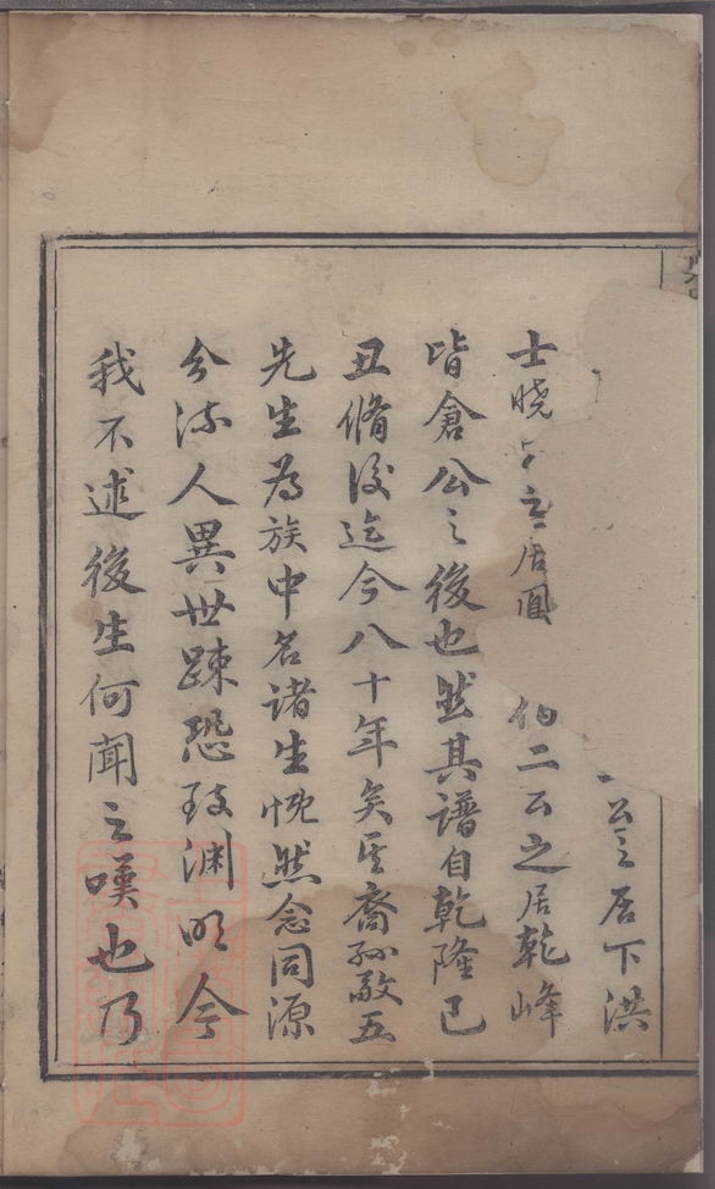 公之居下洪
士曉 之居 伯二公之居乾峰
皆倉公之後也然其譜自乾隆已
丑脩後迄今八十年矣其裔孫敬五
先生為族中名諸生恍然念同源
分流人異世踈恐致淵明今
我不述後生何聞之嘆也乃